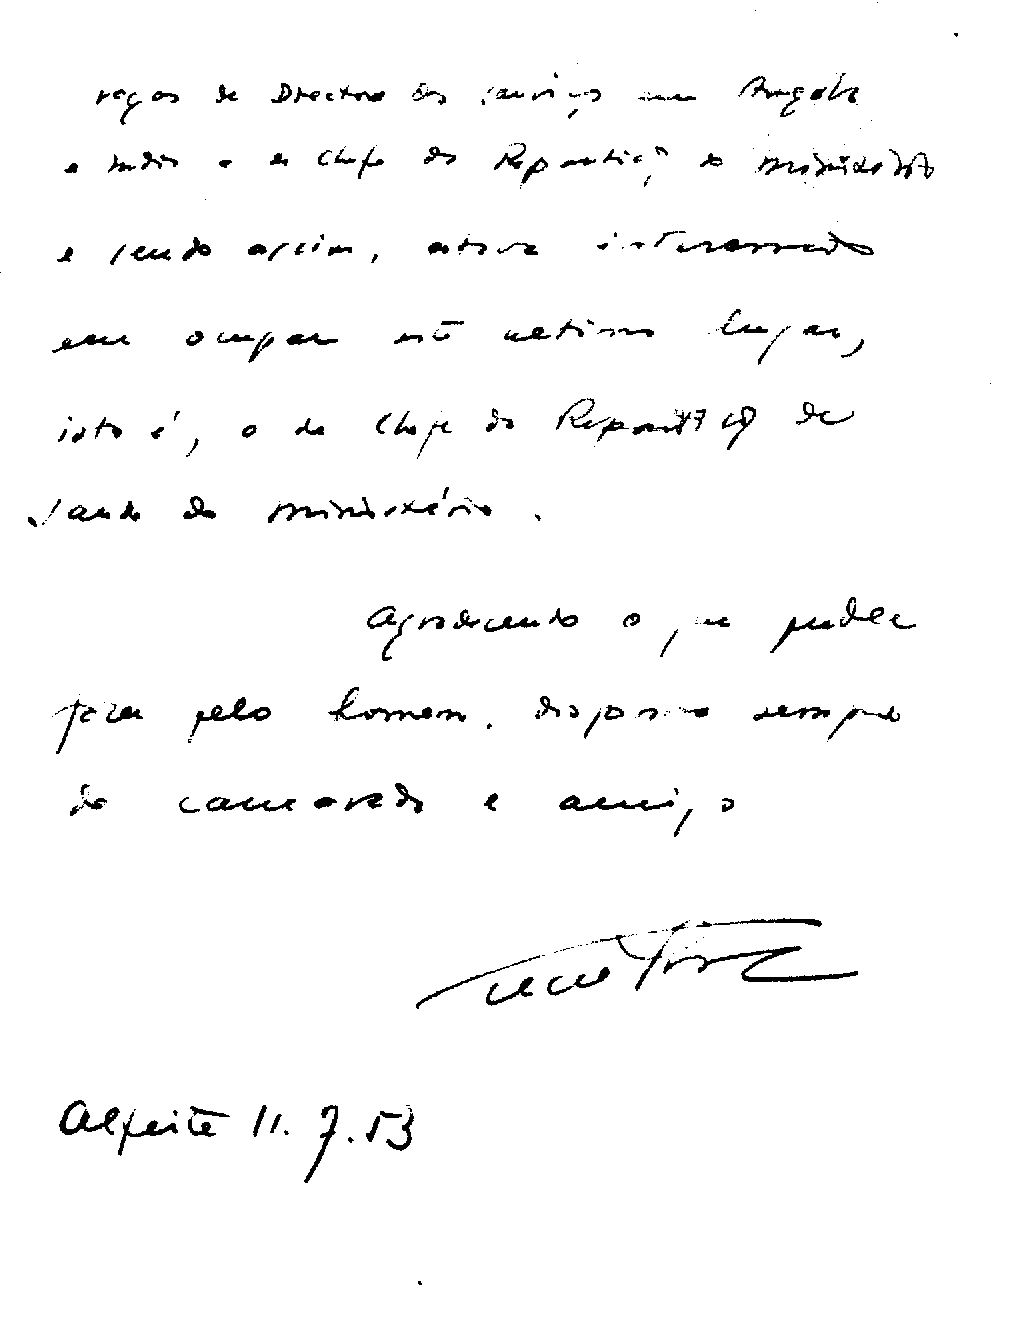 vagas de Director dos serviços em Angola
e India e a de Chefe da Repartição do Ministério
e sendo assim, estava interessado
em ocupar este ultimo lugar,
isto é, o de Chefe da Repartição de
Saude do Ministério.
Agradecendo o que puder
fazer pelo homem, dispõe sempre
do camarada e amigo
Alfeite 11.7.53